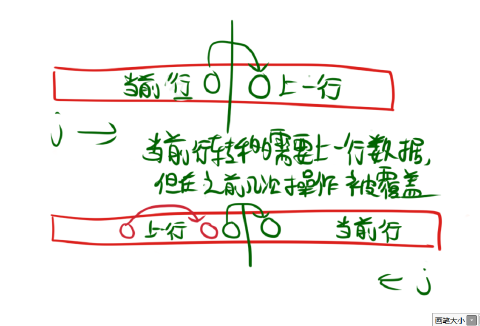 当前行 上一行
j →
当前行转移时需要上一行数据,
但在之前几次操作被覆盖
上一行 当前行
← j
画笔大小